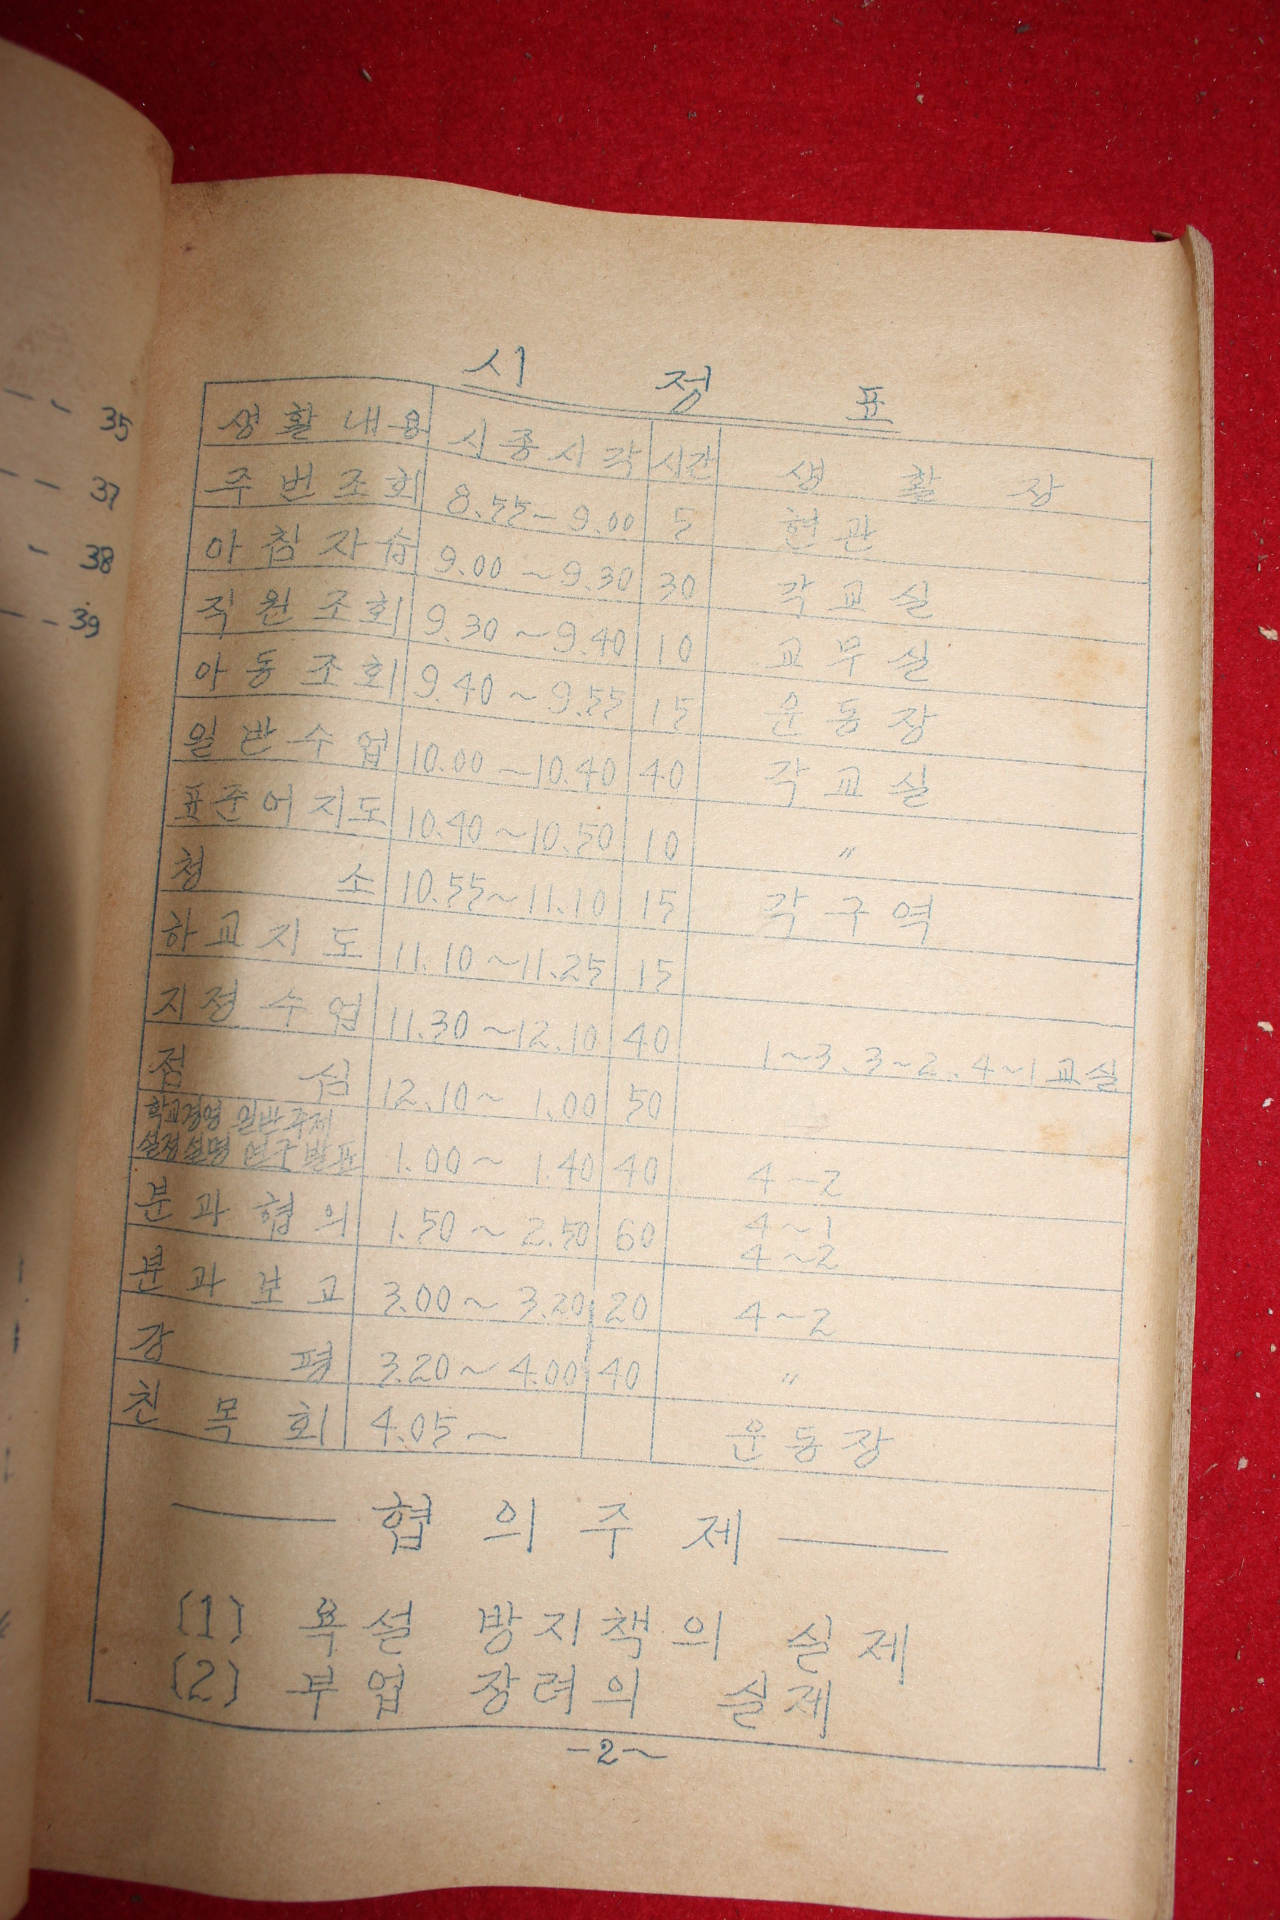 35
37
38
39
시 정 표
생활내용 시종시각 시간 생 활 장
주번조회 8.55~9.00 5 현관
아침자습 9.00~9.30 30 각교실
직원조회 9.30~9.40 10 교무실
아동조회 9.40~9.55 15 운동장
일반수업 10.00~10.40 40 각교실
표준어지도 10.40~10.50 10 〃
청 소 10.55~11.10 15 각구역
하교지도 11.10~11.25 15
지정수업 11.30~12.10 40 1~3. 3~2. 4~1교실
점 심 12.10~1.00 50
학교경영 일반주제
실정설명 연구발표 1.00~1.40 40 4~2
분과협의 1.50~2.50 60 4~1
4~2
분과보고 3.00~3.20 20 4~2
강 평 3.20~4.00 40 〃
친 목 회 4.05~ 운동장
협 의 주 제
(1) 욕설 방지책의 실제
(2) 부업 장려의 실제
-2~